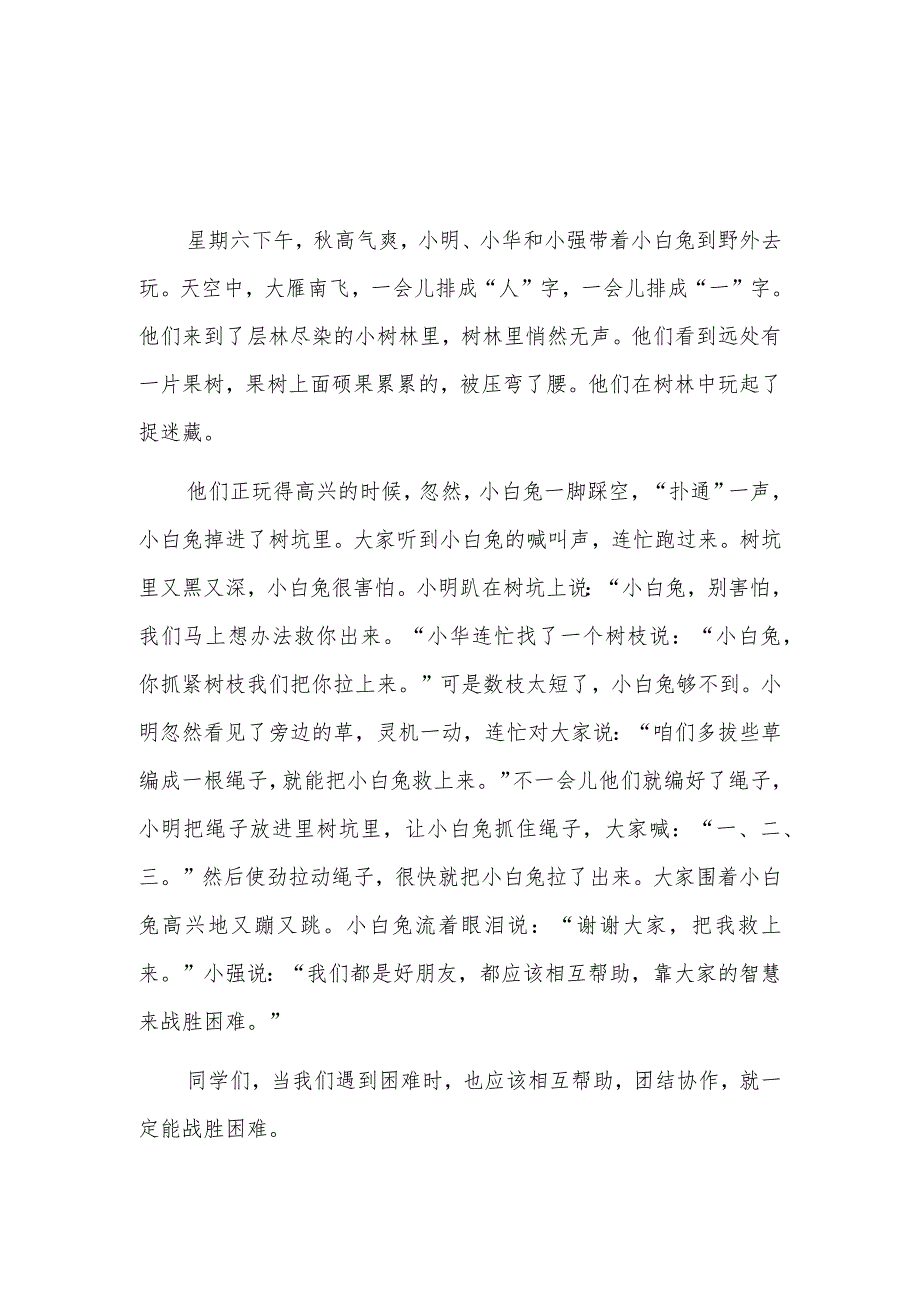 星期六下午，秋高气爽，小明、小华和小强带着小白兔到野外去
玩。天空中，大雁南飞，一会儿排成“人”字，一会儿排成“一”字。
他们来到了层林尽染的小树林里，树林里悄然无声。他们看到远处有
一片果树，果树上面硕果累累的，被压弯了腰。他们在树林中玩起了
捉迷藏。
他们正玩得高兴的时候，忽然，小白兔一脚踩空，“扑通”一声，
小白兔掉进了树坑里。大家听到小白兔的喊叫声，连忙跑过来。树坑
里又黑又深，小白兔很害怕。小明趴在树坑上说：“小白兔，别害怕，
我们马上想办法救你出来。“小华连忙找了一个树枝说：“小白兔，
你抓紧树枝我们把你拉上来。”可是数枝太短了，小白兔够不到。小
明忽然看见了旁边的草，灵机一动，连忙对大家说：“咱们多拔些草
编成一根绳子，就能把小白兔救上来。”不一会儿他们就编好了绳子，
小明把绳子放进里树坑里，让小白兔抓住绳子，大家喊：“一、二、
三。”然后使劲拉动绳子，很快就把小白兔拉了出来。大家围着小白
兔高兴地又蹦又跳。小白兔流着眼泪说：“谢谢大家，把我救上
来。”小强说：“我们都是好朋友，都应该相互帮助，靠大家的智慧
来战胜困难。”
同学们，当我们遇到困难时，也应该相互帮助，团结协作，就一
定能战胜困难。